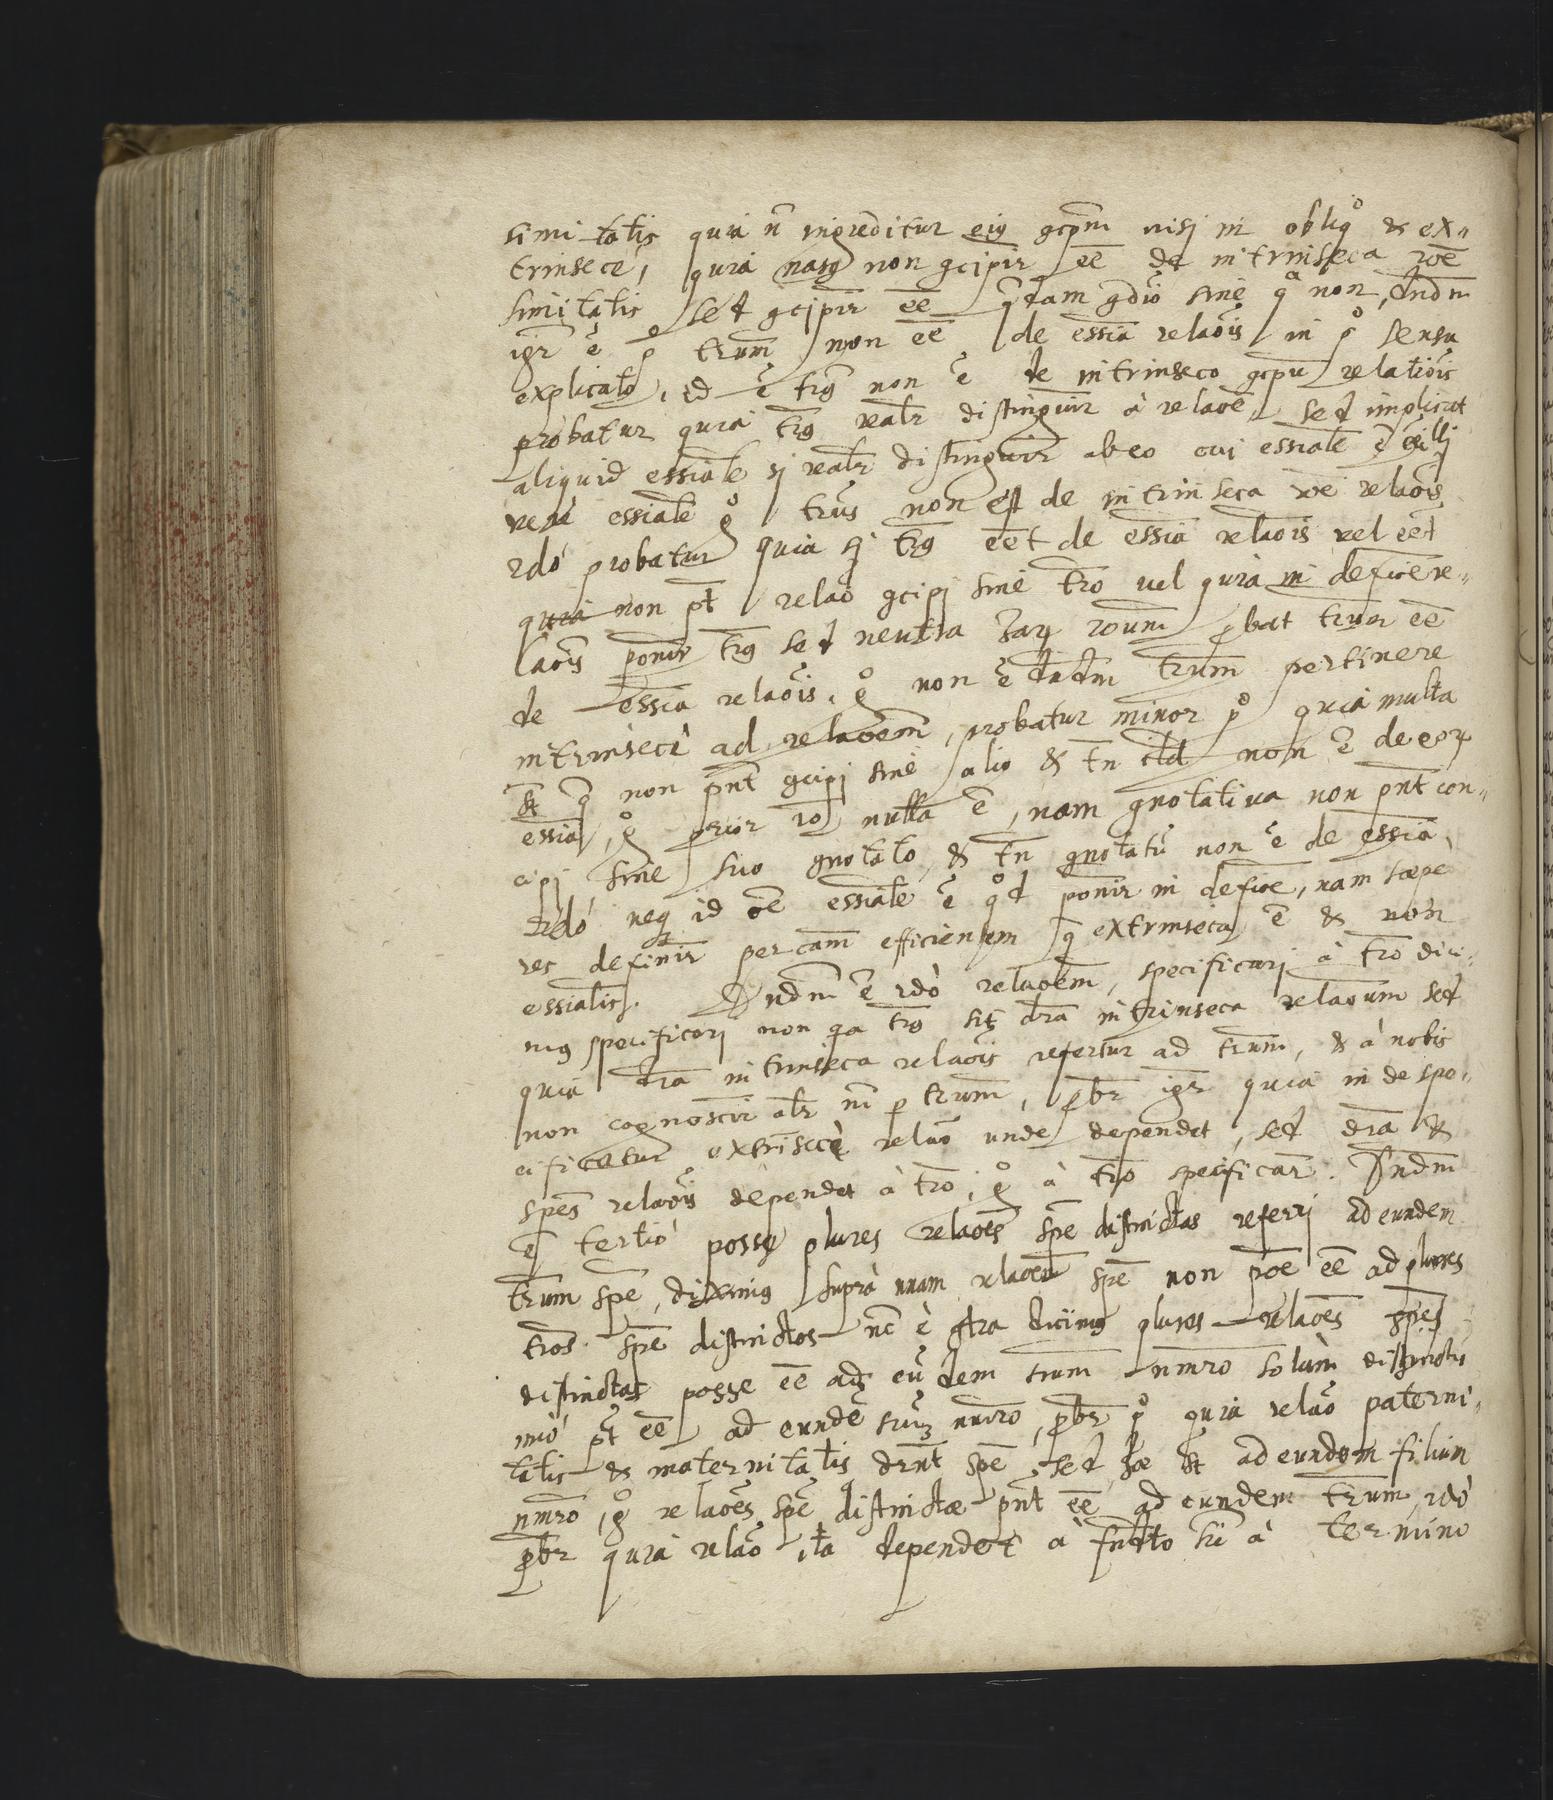 simitatis quia n̄ ingreditur eiq gcp̄m nisj in obliqº & ex-
trinsecè, quia nasq non gcipir ēē de intrinseca rōē
simitatis sed gcipir ēē q̄dam gdiō sine qª non, dndm
igr̄ ē pº trum non ēē de essīa relaōis in pº sensu
explicato, id ē trq non ē de intrinseco gcpu relatiōis
probatur quia trq realr̄ distinguir à relaōē, sed implicat
aliquid essiale si realr̄ distinguir ab eo cui essiale ē
verà essiale gº trus non est de intrinseca rōē relaōis
2dó probatur quia si trq ēēt de essīa relaōis vel ēēt
quia non pt̄ relaō gcipj sine tro vel quia in deficēre-
laōis ponir trq sed neutra harq roum pbat trum ēē
de essīa relaōis, gº non ē dndm trum pertinere
intrinsecè ad relaōem, probatur minor pº quia multa
st̄ q̄ non pnt̄ gcipj sine alio & tn̄ illd non ē de eorq
essīa, gº prior rō nulla ē, nam gnotatiua non pnt̄ con-
cipj sine suo gnotato, & tn̄ gnotatū non ē de essīa,
2dó neq id ōē essiale ē qºd ponir in deficē, nam sæpè
res definir per cam efficientem q̄ extrinseca ē & non
essialis. Dndm ē 2dò relaōem, specificarj à tro dici-
mq specificarj non qa trq sit dr̄a intrinseca relaōum sed
quia dr̄a intrinseca relaōis refertur ad trum, & à nobis
non cognoscir alr̄ nī p trum, pbr̄ igr̄ quia inde spe-
cificatur extrīsecè relaō unde dependet, sed dr̄a &
spēs relaōis dependet à tro, gº à tro specificar̄. Dndm
ē tertiò posse plures relaōēs spē distinctas referri ad eundem
trum spē, diximq suprà unam relaōem spē non pōē ēē ad plures
tros spē distinctos nc̄ è gtra dicimq plures relaōēs spēs
distinctas posse ēē ad eūdem trum nmro solùm distinctū
imó pt̄ ēē ad eundē trum numrō, pbr̄ pº quia relaō paterni-
tatis & maternitatis drnt̄ spē, sed hæ st̄ ad eundem filium
nmrō, gº relaōēs spē distinctæ pnt̄ ēē ad eundem trum, 2dò
pbr̄ quia relaō ita dependet à fndtto sic à termino